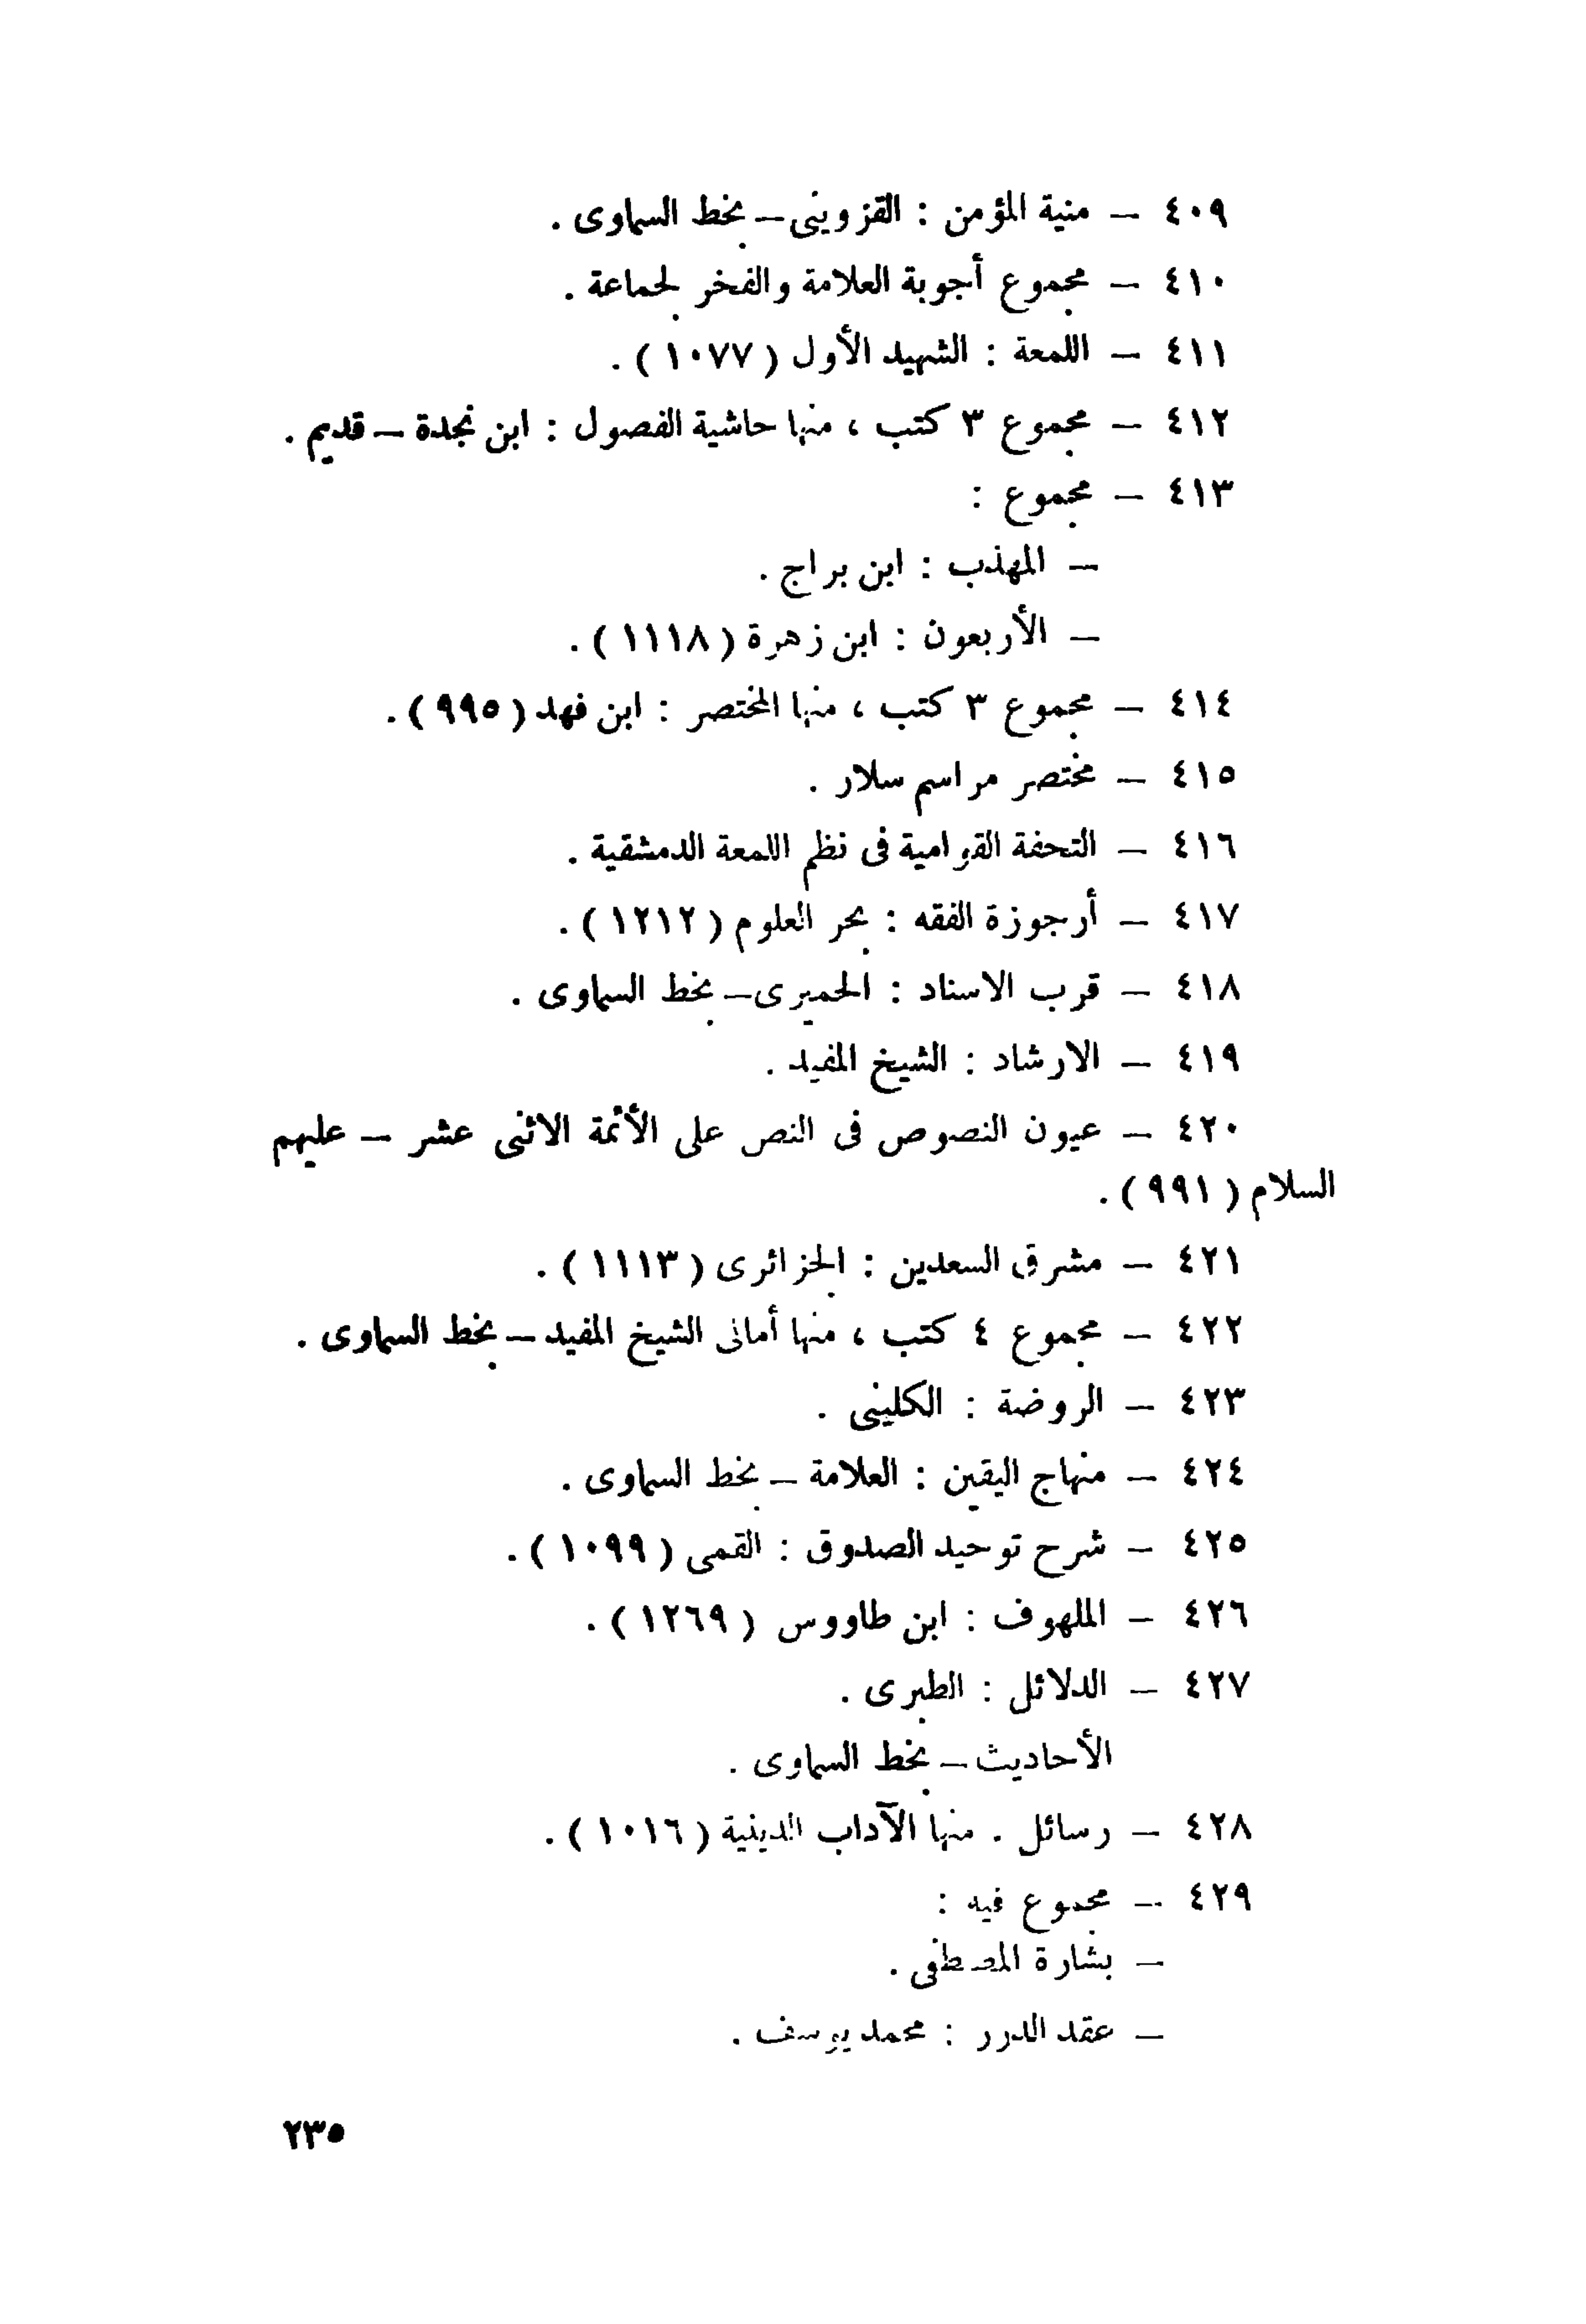 ٤٠٩ – منية المؤمن : القزوينى – بخط السماوى .
٤١٠ – مجموع أجوبة العلامة والفخر لجماعة .
٤١١ – اللمعة : الشهيد الأول ( ١٠٧٧ ) .
٤١٢ – مجموع ٣ كتب ، منها حاشية الفصول : ابن نجدة – قديم .
٤١٣ – مجموع :
– المهذب : ابن براج .
– الأربعون : ابن زهرة ( ١١١٨ ) .
٤١٤ – مجموع ٣ كتب ، منها المختصر : ابن فهد ( ٩٩٥ ) .
٤١٥ – مختصر مراسم سلار .
٤١٦ – التحفة القوامية فى نظم اللمعة الدمشقية .
٤١٧ – أرجوزة الفقه : بحر العلوم ( ١٢١٢ ) .
٤١٨ – قرب الاسناد : الحميرى – بخط السماوى .
٤١٩ – الارشاد : الشيخ المفيد .
٤٢٠ – عيون النصوص فى النص على الأئمة الاثنى عشر – عليهم
السلام ( ٩٩١ ) .
٤٢١ – مشرق السعدين : الجزائرى ( ١١١٣ ) .
٤٢٢ – مجموع ٤ كتب ، منها أمالى الشيخ المفيد – بخط السماوى .
٤٢٣ – الروضة : الكلينى .
٤٢٤ – منهاج اليقين : العلامة – بخط السماوى .
٤٢٥ – شرح توحيد الصدوق : القمى ( ١٠٩٩ ) .
٤٢٦ – الملهوف : ابن طاووس ( ١٢٦٩ ) .
٤٢٧ – الدلائل : الطبرى .
الأحاديث – بخط السماوى .
٤٢٨ – رسائل . منها الآداب الدينية ( ١٠١٦ ) .
٤٢٩ – مجموع فيه :
– بشارة المصطفى .
– عقد الدرر : محمد يوسف .
٢٣٥